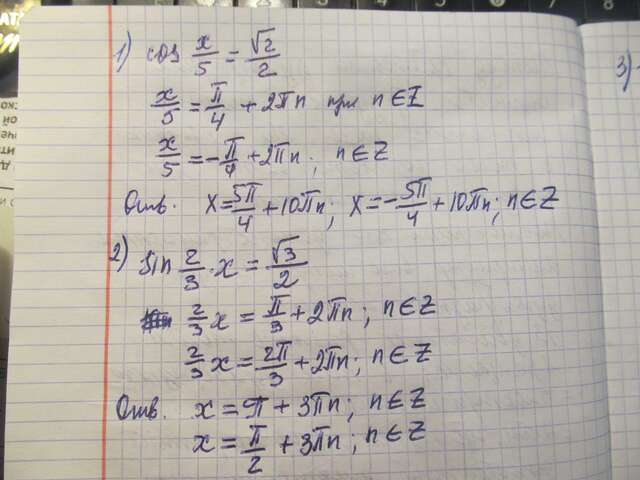 1) cos x/5 = √2/2
x/5 = π/4 + 2πn при n∈Z
x/5 = -π/4 + 2πn; n∈Z
Отв. x = 5π/4 + 10πn; x = -5π/4 + 10πn; n∈Z
2) sin 2/3 · x = √3/2
2/3 x = π/3 + 2πn; n∈Z
2/3 x = 2π/3 + 2πn; n∈Z
Отв. x = π + 3πn; n∈Z
x = π/2 + 3πn; n∈Z
3)